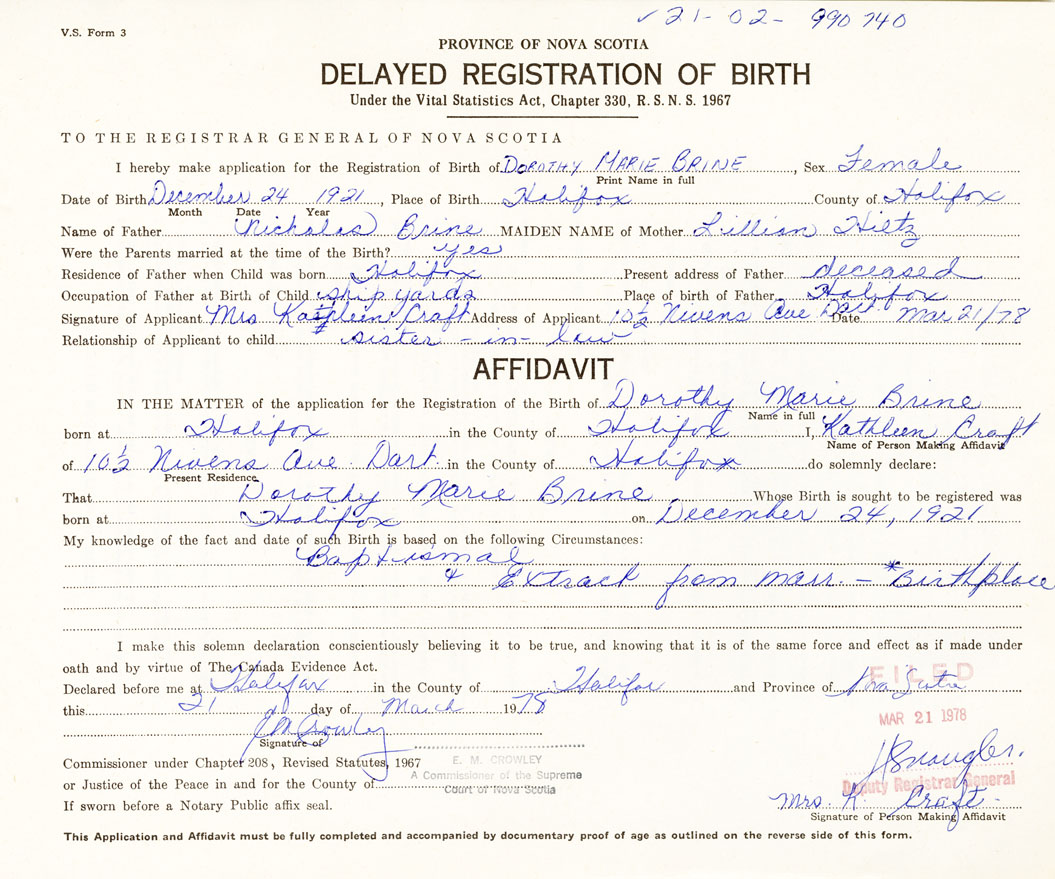 ✓ 21-02- 990740
V.S. Form 3
PROVINCE OF NOVA SCOTIA
DELAYED REGISTRATION OF BIRTH
Under the Vital Statistics Act, Chapter 330, R. S. N. S. 1967
TO THE REGISTRAR GENERAL OF NOVA SCOTIA
I hereby make application for the Registration of Birth of DOROTHY MARIE BRINE, Sex Female
Print Name in full
Date of Birth December 24 1921, Place of Birth Halifax County of Halifax
Month Date Year
Name of Father Nickolas Brine MAIDEN NAME of Mother Lillian Hiltz
Were the Parents married at the time of the Birth? yes
Residence of Father when Child was born Halifax Present address of Father deceased
Occupation of Father at Birth of Child ship yards Place of birth of Father Halifax
Signature of Applicant Mrs Kathleen Craft Address of Applicant 10½ Nivens Ave Dart. Date Mar 21/78
Relationship of Applicant to child sister-in-law
AFFIDAVIT
IN THE MATTER of the application for the Registration of the Birth of Dorothy Marie Brine
Name in full
born at Halifax in the County of Halifax I, Kathleen Craft
Name of Person Making Affidavit
of 10½ Nivens Ave Dart. in the County of Halifax do solemnly declare:
Present Residence
That Dorothy Marie Brine Whose Birth is sought to be registered was
born at Halifax on December 24, 1921
My knowledge of the fact and date of such Birth is based on the following Circumstances:
Baptismal
& Extrack from marr. - *Birthplace
I make this solemn declaration conscientiously believing it to be true, and knowing that it is of the same force and effect as if made under
oath and by virtue of The Canada Evidence Act.
Declared before me at Halifax in the County of Halifax and Province of Nova Scotia
FILED
this 21 day of March 1978
MAR 21 1978
EM Crowley
Signature of
Commissioner under Chapter 208, Revised Statutes, 1967
E. M. CROWLEY
or Justice of the Peace in and for the County of
A Commissioner of the Supreme
Court of Nova Scotia
Deputy Registrar General
If sworn before a Notary Public affix seal.
Mrs. K. Craft
Signature of Person Making Affidavit
This Application and Affidavit must be fully completed and accompanied by documentary proof of age as outlined on the reverse side of this form.